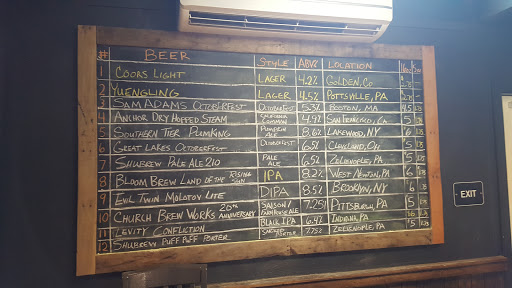 # BEER STYLE ABV% LOCATION
1 COORS LIGHT LAGER 4.2% GOLDEN, CO
2 YUENGLING LAGER 4.5% POTTSVILLE, PA
3 SAM ADAMS OCTOBERFEST OKTOBERFEST 5.3% BOSTON, MA 4.5
4 ANCHOR DRY HOPPED STEAM CALIFORNIA COMMON 4.9% SAN FRANCISCO, CA 5
5 SOUTHERN TIER PUMKING PUMPKIN ALE 8.6% LAKEWOOD, NY 6
6 GREAT LAKES OCTOBERFEST OKTOBERFEST 6.5% CLEVELAND, OH 5
7 SHUBREW PALE ALE 210 PALE ALE 6.5% ZELIENOPLE, PA 5
8 BLOOM BREW LAND OF THE RISING SUN IPA 8.2% WEST NEWTON, PA 6
9 EVIL TWIN MOLOTOV LITE DIPA 8.5% BROOKLYN, NY 6
10 CHURCH BREW WORKS 20th ANNIVERSARY SAISON/ FARMHOUSE ALE 7.25% PITTSBURGH, PA 5
11 LEVITY CONFLICTION BLACK IPA 6.4% INDIANA, PA
12 SHUBREW PUFF PUFF PORTER SMOKED PORTER 7.75% ZELIENOPLE, PA 5
EXIT